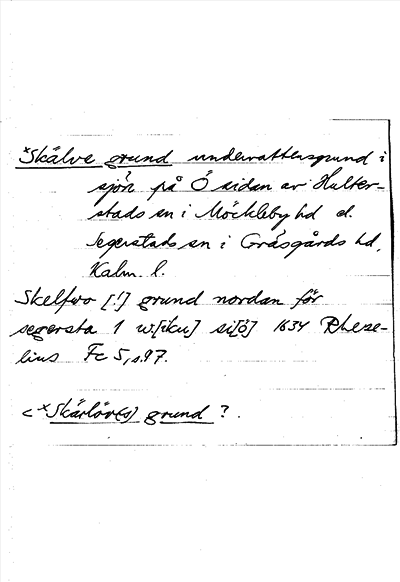 *Skälve grund undervattensgrund i
sjön på Ö sidan av Hulter-
stads sn i Möckleby hd o.
Segerstads sn i Gräsgårds hd,
Kalm. l.
Skelfwo [!] grund nordan för
segersta 1 w[iku] si[ö] 1634 Rheze-
lius Fc 5, s. 97.
< *Skärlöv(s) grund ?.